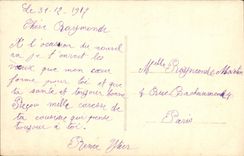 Le 31-12-1917
Chère Raymonde
A l'occasion du nouvel
an je t'envoie les
vœux que mon cœur
forme pour toi et que
la santé et toujours bonne
Reçoit mille caresse de
ta cousine qui pense
toujours à toi.
Renée
Melle Raymonde Martin
4 Rue
Paris